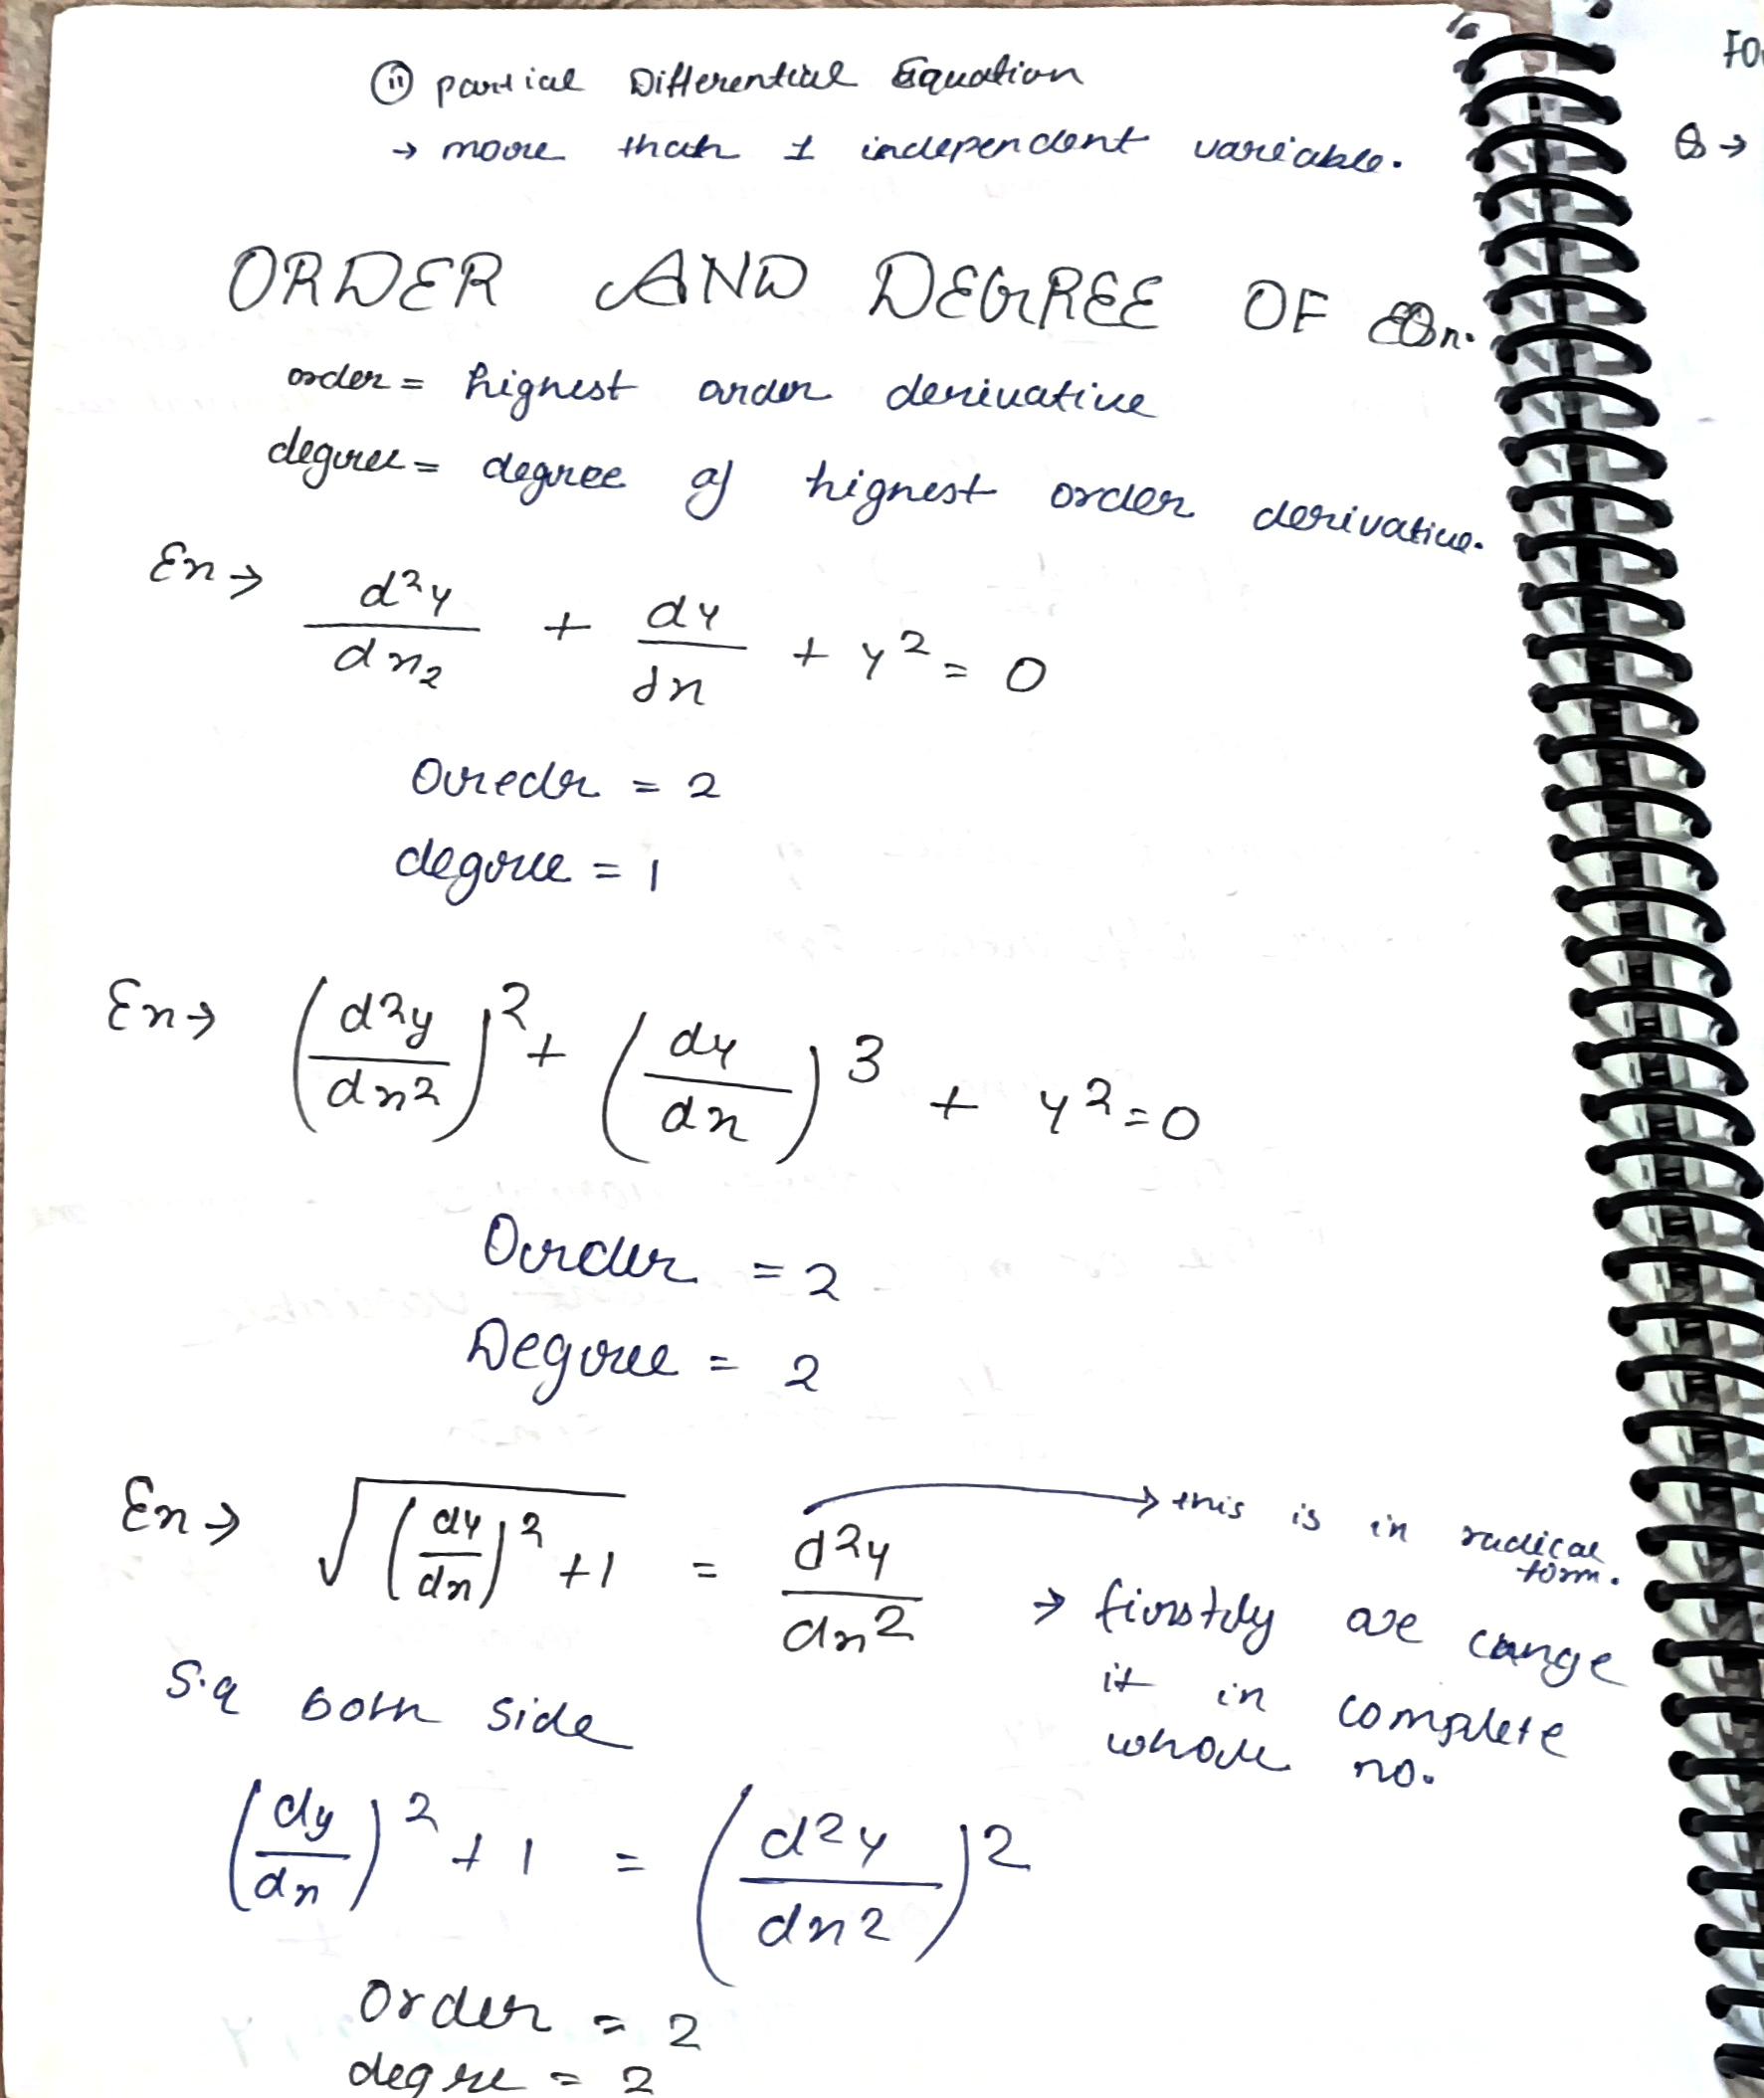 (ii) partial Differential Equation
→ more than 1 independent variable.
ORDER AND DEGREE OF EQn.
order = highest order derivative
degree = degree of highest order derivative.
Ex → d²y/dx₂ + dy/dx + y² = 0
Oredr = 2
degree = 1
Ex → (d²y/dx²)² + (dy/dx)³ + y² = 0
Order = 2
Degree = 2
Ex → √((dy/dx)² + 1) = d²y/dx² → this is in radical form.
→ firstly we cange
it in complete
whole no.
S.q both side
(dy/dx)² + 1 = (d²y/dx²)²
Order = 2
degre = 2
FO
Q →